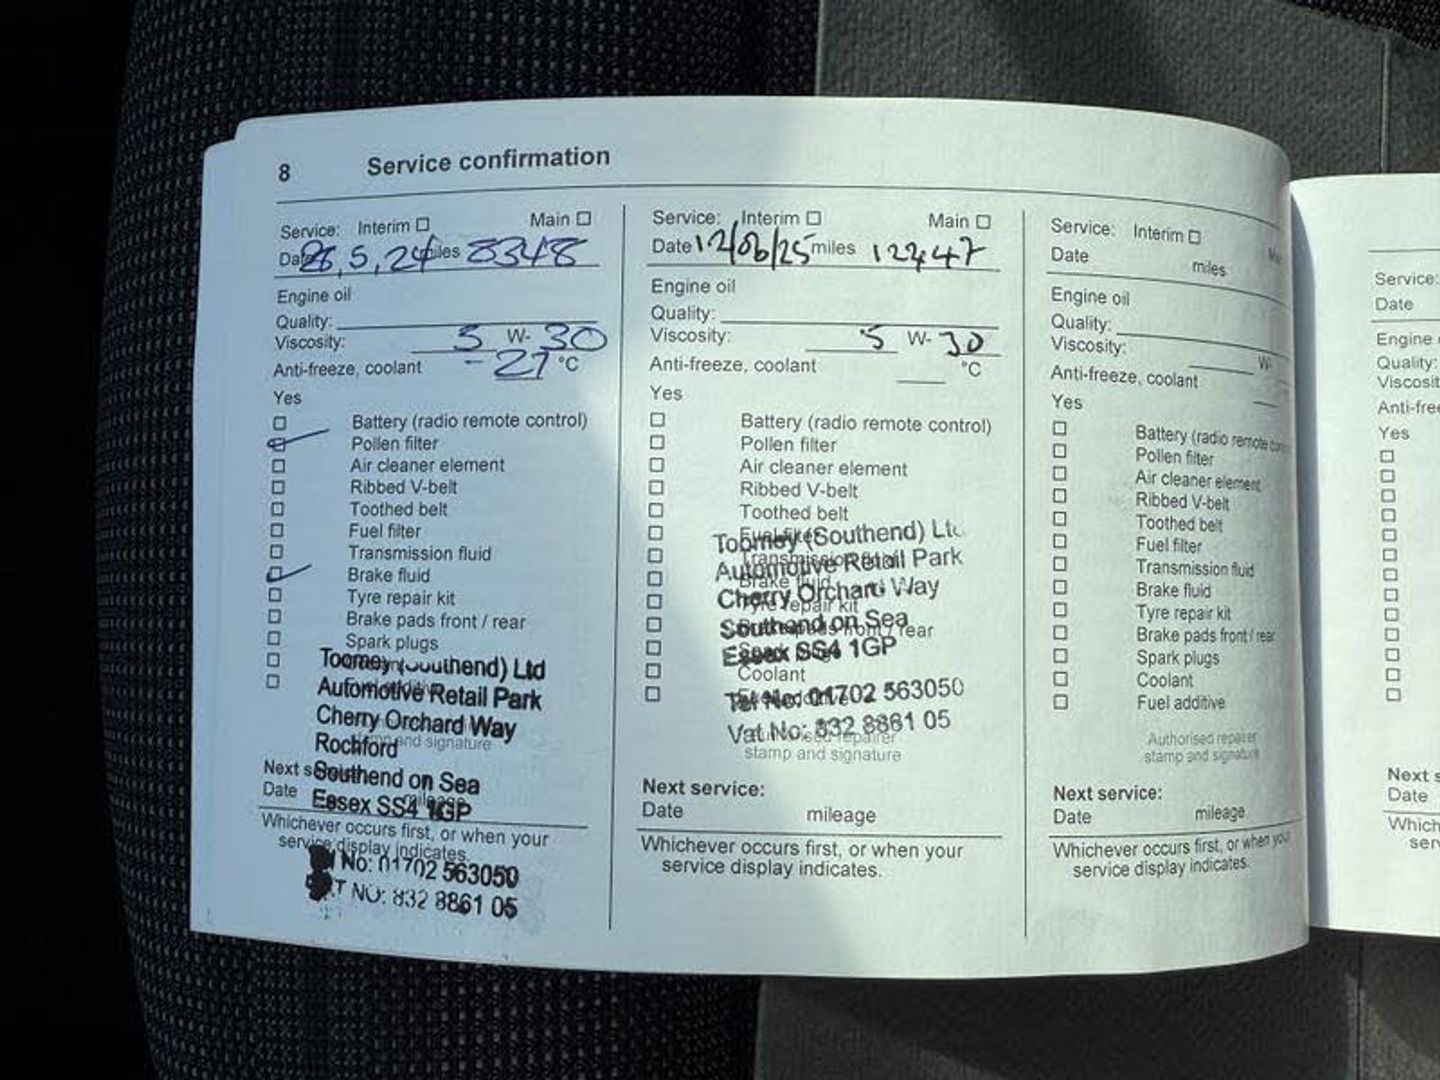 8 Service confirmation
Service: Interim Main
Date 28,5,24 miles 8348
Engine oil
Quality:
Viscosity: 5 W- 30
Anti-freeze, coolant -27 °C
Yes
Battery (radio remote control)
Pollen filter
Air cleaner element
Ribbed V-belt
Toothed belt
Fuel filter
Transmission fluid
Brake fluid
Tyre repair kit
Brake pads front / rear
Spark plugs
Toomey (Southend) Ltd
Automotive Retail Park
Cherry Orchard Way
and signature
Rochford
Southend on Sea
Essex SS4 1GP
Next
Date
Whichever occurs first, or when your
service display indicates.
No: 01702 563050
NO: 832 8861 05
Service: Interim Main
Date 12/06/25 miles 12447
Engine oil
Quality:
Viscosity: 5 W- 30
Anti-freeze, coolant °C
Yes
Battery (radio remote control)
Pollen filter
Air cleaner element
Ribbed V-belt
Toothed belt
Fuel filter
Toomey (Southend) Lt
Transmission fluid
Automotive Retail Park
Brake fluid
Cherry Orchard Way
Tyre repair kit
Southend on Sea
rear
Essex SS4 1GP
Coolant
Tel No: 01702 563050
Vat No: 832 8861 05
stamp and signature
Next service:
Date mileage
Whichever occurs first, or when your
service display indicates.
Service: Interim
Date miles
Engine oil
Quality:
Viscosity: W-
Anti-freeze, coolant
Yes
Battery (radio remote
Pollen filter
Air cleaner element
Ribbed V-belt
Toothed belt
Fuel filter
Transmission fluid
Brake fluid
Tyre repair kit
Brake pads front / rear
Spark plugs
Coolant
Fuel additive
Authorised repairer
stamp and signature
Next service:
Date mileage
Whichever occurs first, or when you
service display indicates.
Service:
Date
Engine
Quality:
Viscosit
Anti-free
Yes
Next s
Date
Which
ser